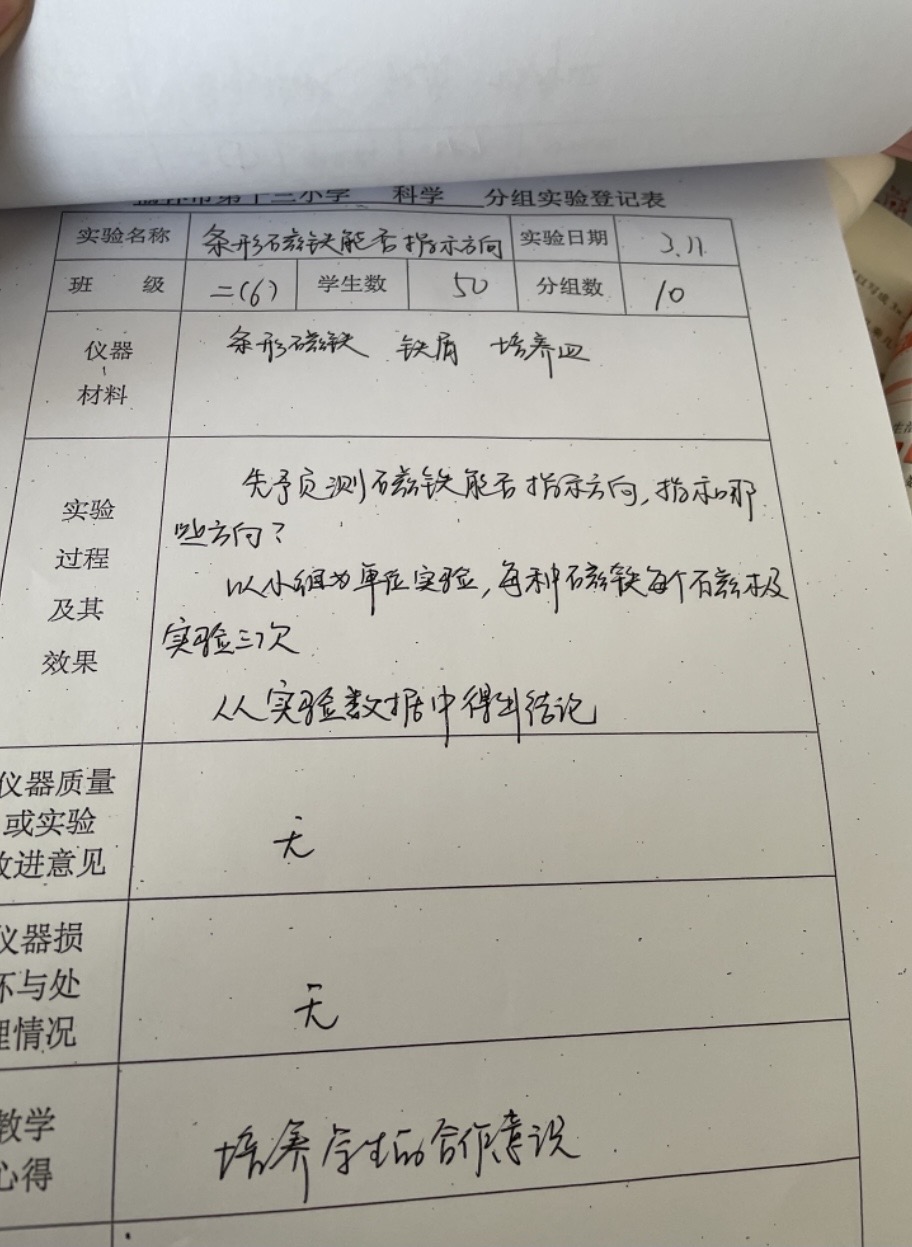 第十三小学 科学 分组实验登记表
实验名称 条形磁铁能否指示方向 实验日期 3.11
班 级 二(6) 学生数 50 分组数 10
仪器 条形磁铁 铁屑 培养皿
、
材料
先予页测磁铁能否指示方向,指示哪
实验
些方向?
过程
以小组为单位实验,每种磁铁每个磁极
及其
实验三次
效果
从实验数据中得出结论
仪器质量
或实验
改进意见
无
仪器损
坏与处
理情况
无
教学
心得
培养学生的合作意识